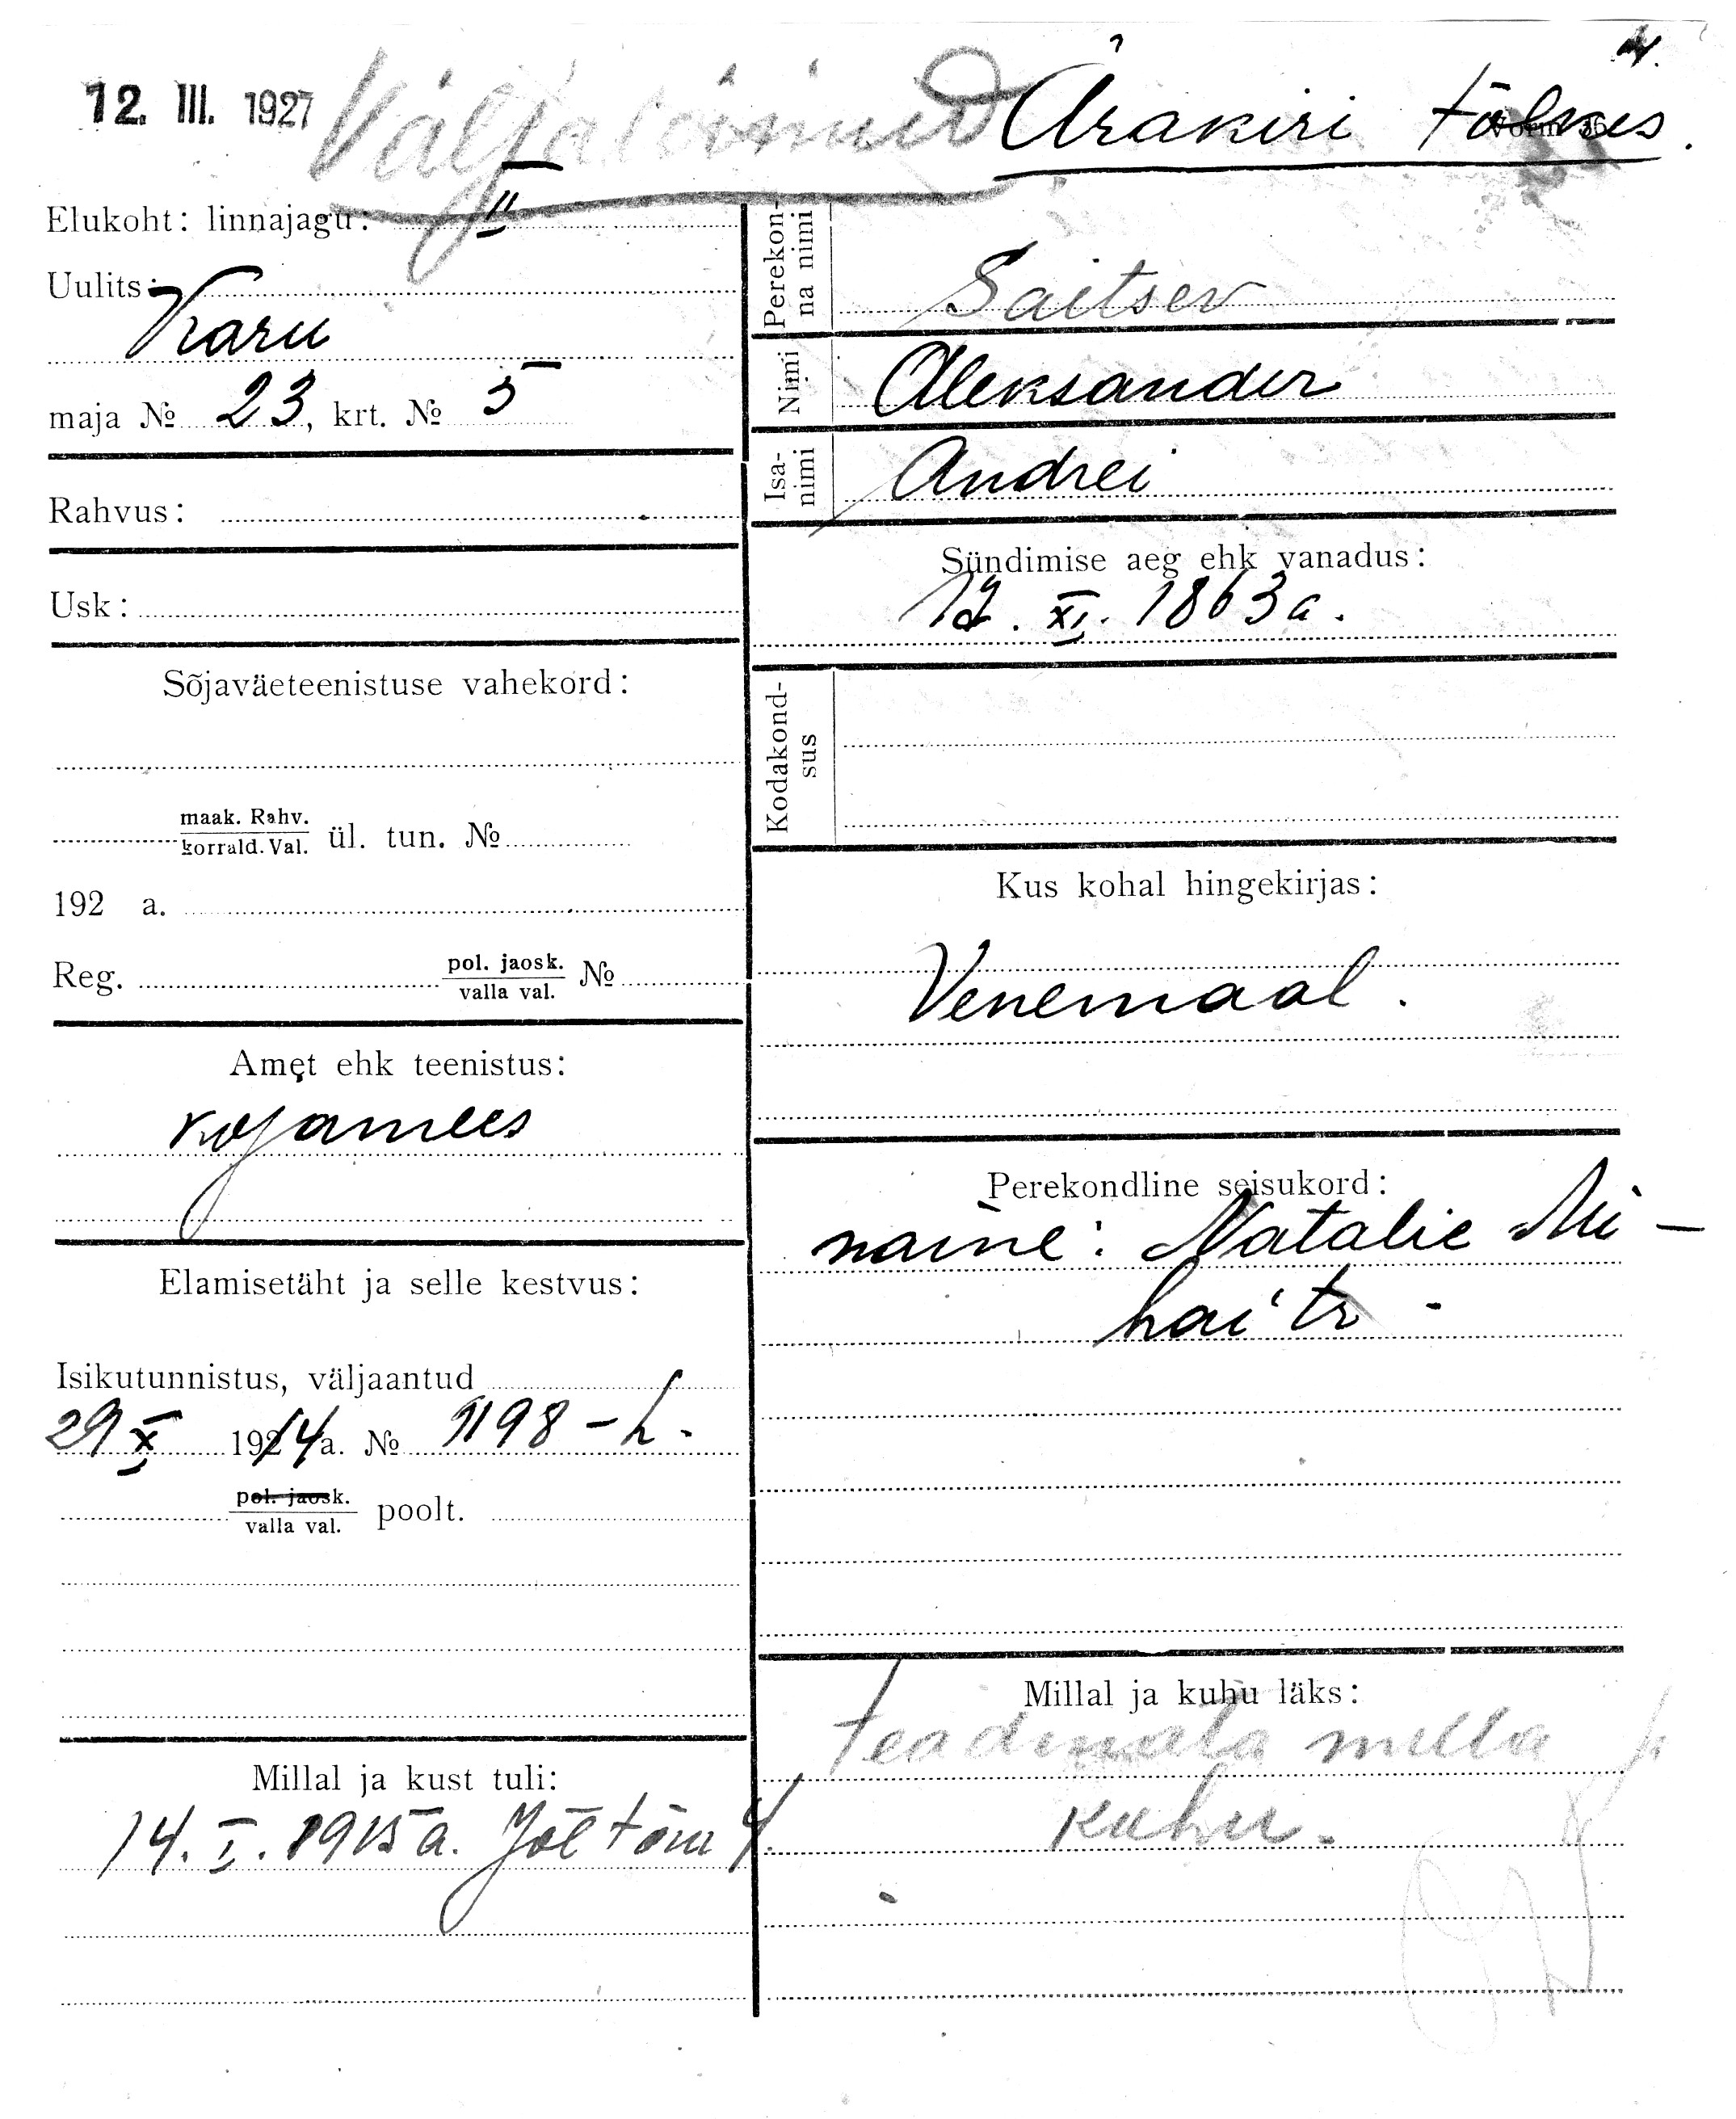 12. III. 1927 Väljaläinud Ärakiri tõlkes.
Elukoht: linnajagu: II
Uulits:
Karu
maja № 23, krt. № 5
Rahvus:
Usk:
Sõjaväeteenistuse vahekord:
maak. Rahv.
korrald. Val. ül. tun. №
192 a.
Reg. pol. jaosk. №
valla val.
Amet ehk teenistus:
kojamees
Elamisetäht ja selle kestvus:
Isikutunnistus, väljaantud
29 X 1914 a. № 9198 - h.
pol. jaosk.
valla val. poolt.
Millal ja kust tuli:
14. I. 1915 a. Jõe tän 4.
Perekon-
na nimi
Saitsev
Nimi
Aleksander
Isa-
nimi
Andrei
Sündimise aeg ehk vanadus:
12. XI. 1863 a.
Kodakond-
sus
Kus kohal hingekirjas:
Venemaal.
Perekondline seisukord:
naine: Natalie Mi-
hai tr.
Millal ja kuhu läks:
teadmata millal ja
kuhu.